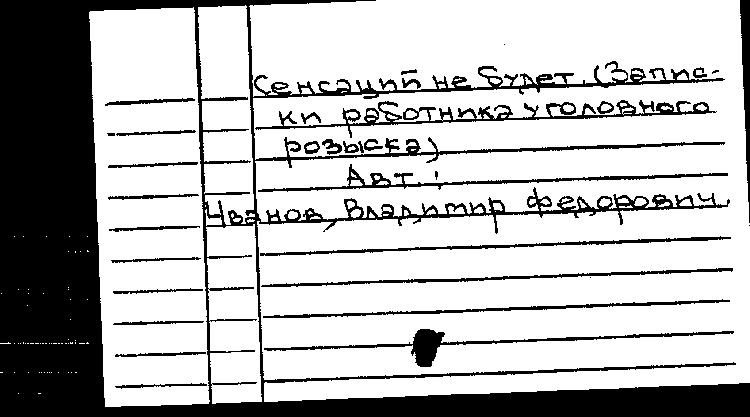 Сенсаций не будет. (Запис-
ки работника уголовного
розыска)
Авт.:
Иванов, Владимир Федорович.